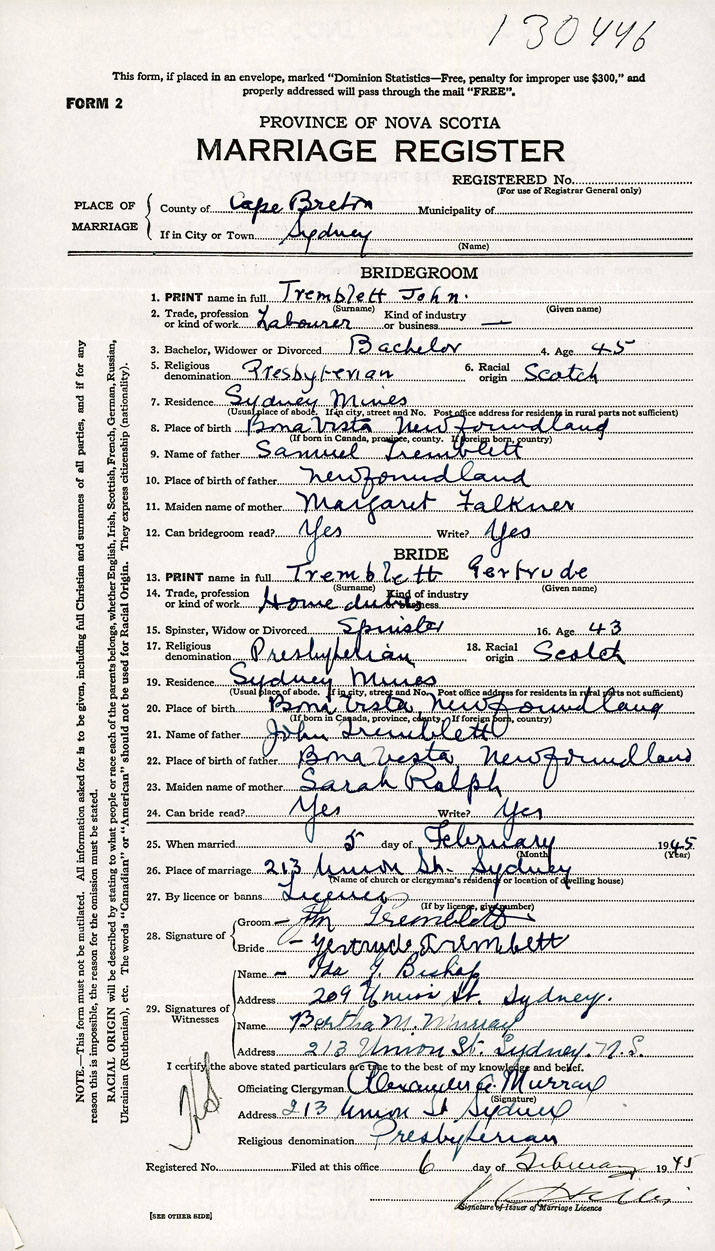 130446
This form, if placed in an envelope, marked "Dominion Statistics—Free, penalty for improper use $300," and
properly addressed will pass through the mail "FREE".
FORM 2
PROVINCE OF NOVA SCOTIA
MARRIAGE REGISTER
REGISTERED No.
(For use of Registrar General only)
PLACE OF MARRIAGE
County of Cape Breton Municipality of
If in City or Town Sydney
(Name)
BRIDEGROOM
1. PRINT name in full Tremblett John.
(Surname) (Given name)
2. Trade, profession or kind of work Labourer Kind of industry or business —
3. Bachelor, Widower or Divorced Bachelor 4. Age 45
5. Religious denomination Presbyterian 6. Racial origin Scotch
7. Residence Sydney Mines
(Usual place of abode. If in city, street and No. Post office address for residents in rural parts not sufficient)
8. Place of birth Bona Vista Newfoundland
(If born in Canada, province, county. If foreign born, country)
9. Name of father Samuel Tremblett
10. Place of birth of father Newfoundland
11. Maiden name of mother Margaret Falkner
12. Can bridegroom read? Yes Write? Yes
BRIDE
13. PRINT name in full Tremblett Gertrude
(Surname) (Given name)
14. Trade, profession or kind of work Home duties Kind of industry or business
15. Spinster, Widow or Divorced Spinster 16. Age 43
17. Religious denomination Presbyterian 18. Racial origin Scotch
19. Residence Sydney Mines
(Usual place of abode. If in city, street and No. Post office address for residents in rural parts not sufficient)
20. Place of birth Bona Vista, Newfoundland
(If born in Canada, province, county. If foreign born, country)
21. Name of father John Tremblett
22. Place of birth of father Bona Vesta Newfoundland
23. Maiden name of mother Sarah Ralph
24. Can bride read? Yes Write? Yes
25. When married 5 day of February 1945
(Month) (Year)
26. Place of marriage 213 Union St. Sydney
(Name of church or clergyman's residence or location of dwelling house)
27. By licence or banns Licence
(If by licence, give number)
28. Signature of
Groom – Jn Tremblett
Bride – Gertrude Trembett
29. Signatures of Witnesses
Name – Ida J. Bishop
Address 209 Union St. Sydney.
Name Bertha M. Murray
Address 213 Union St. Sydney N.S.
I certify the above stated particulars are true to the best of my knowledge and belief.
Officiating Clergyman Alexander A. Murray
(Signature)
Address 213 Union St Sydney
Religious denomination Presbyterian
Registered No. Filed at this office 6 day of February 1945
Signature of Issuer of Marriage Licence
[SEE OTHER SIDE]
NOTE.—This form must not be mutilated. All information asked for is to be given, including full Christian and surnames of all parties, and if for any
reason this is impossible, the reason for the omission must be stated.
RACIAL ORIGIN will be described by stating to what people or race each of the parents belongs, whether English, Irish, Scottish, French, German, Russian,
Ukrainian (Ruthenian), etc. The words "Canadian" or "American" should not be used for Racial Origin. They express citizenship (nationality).